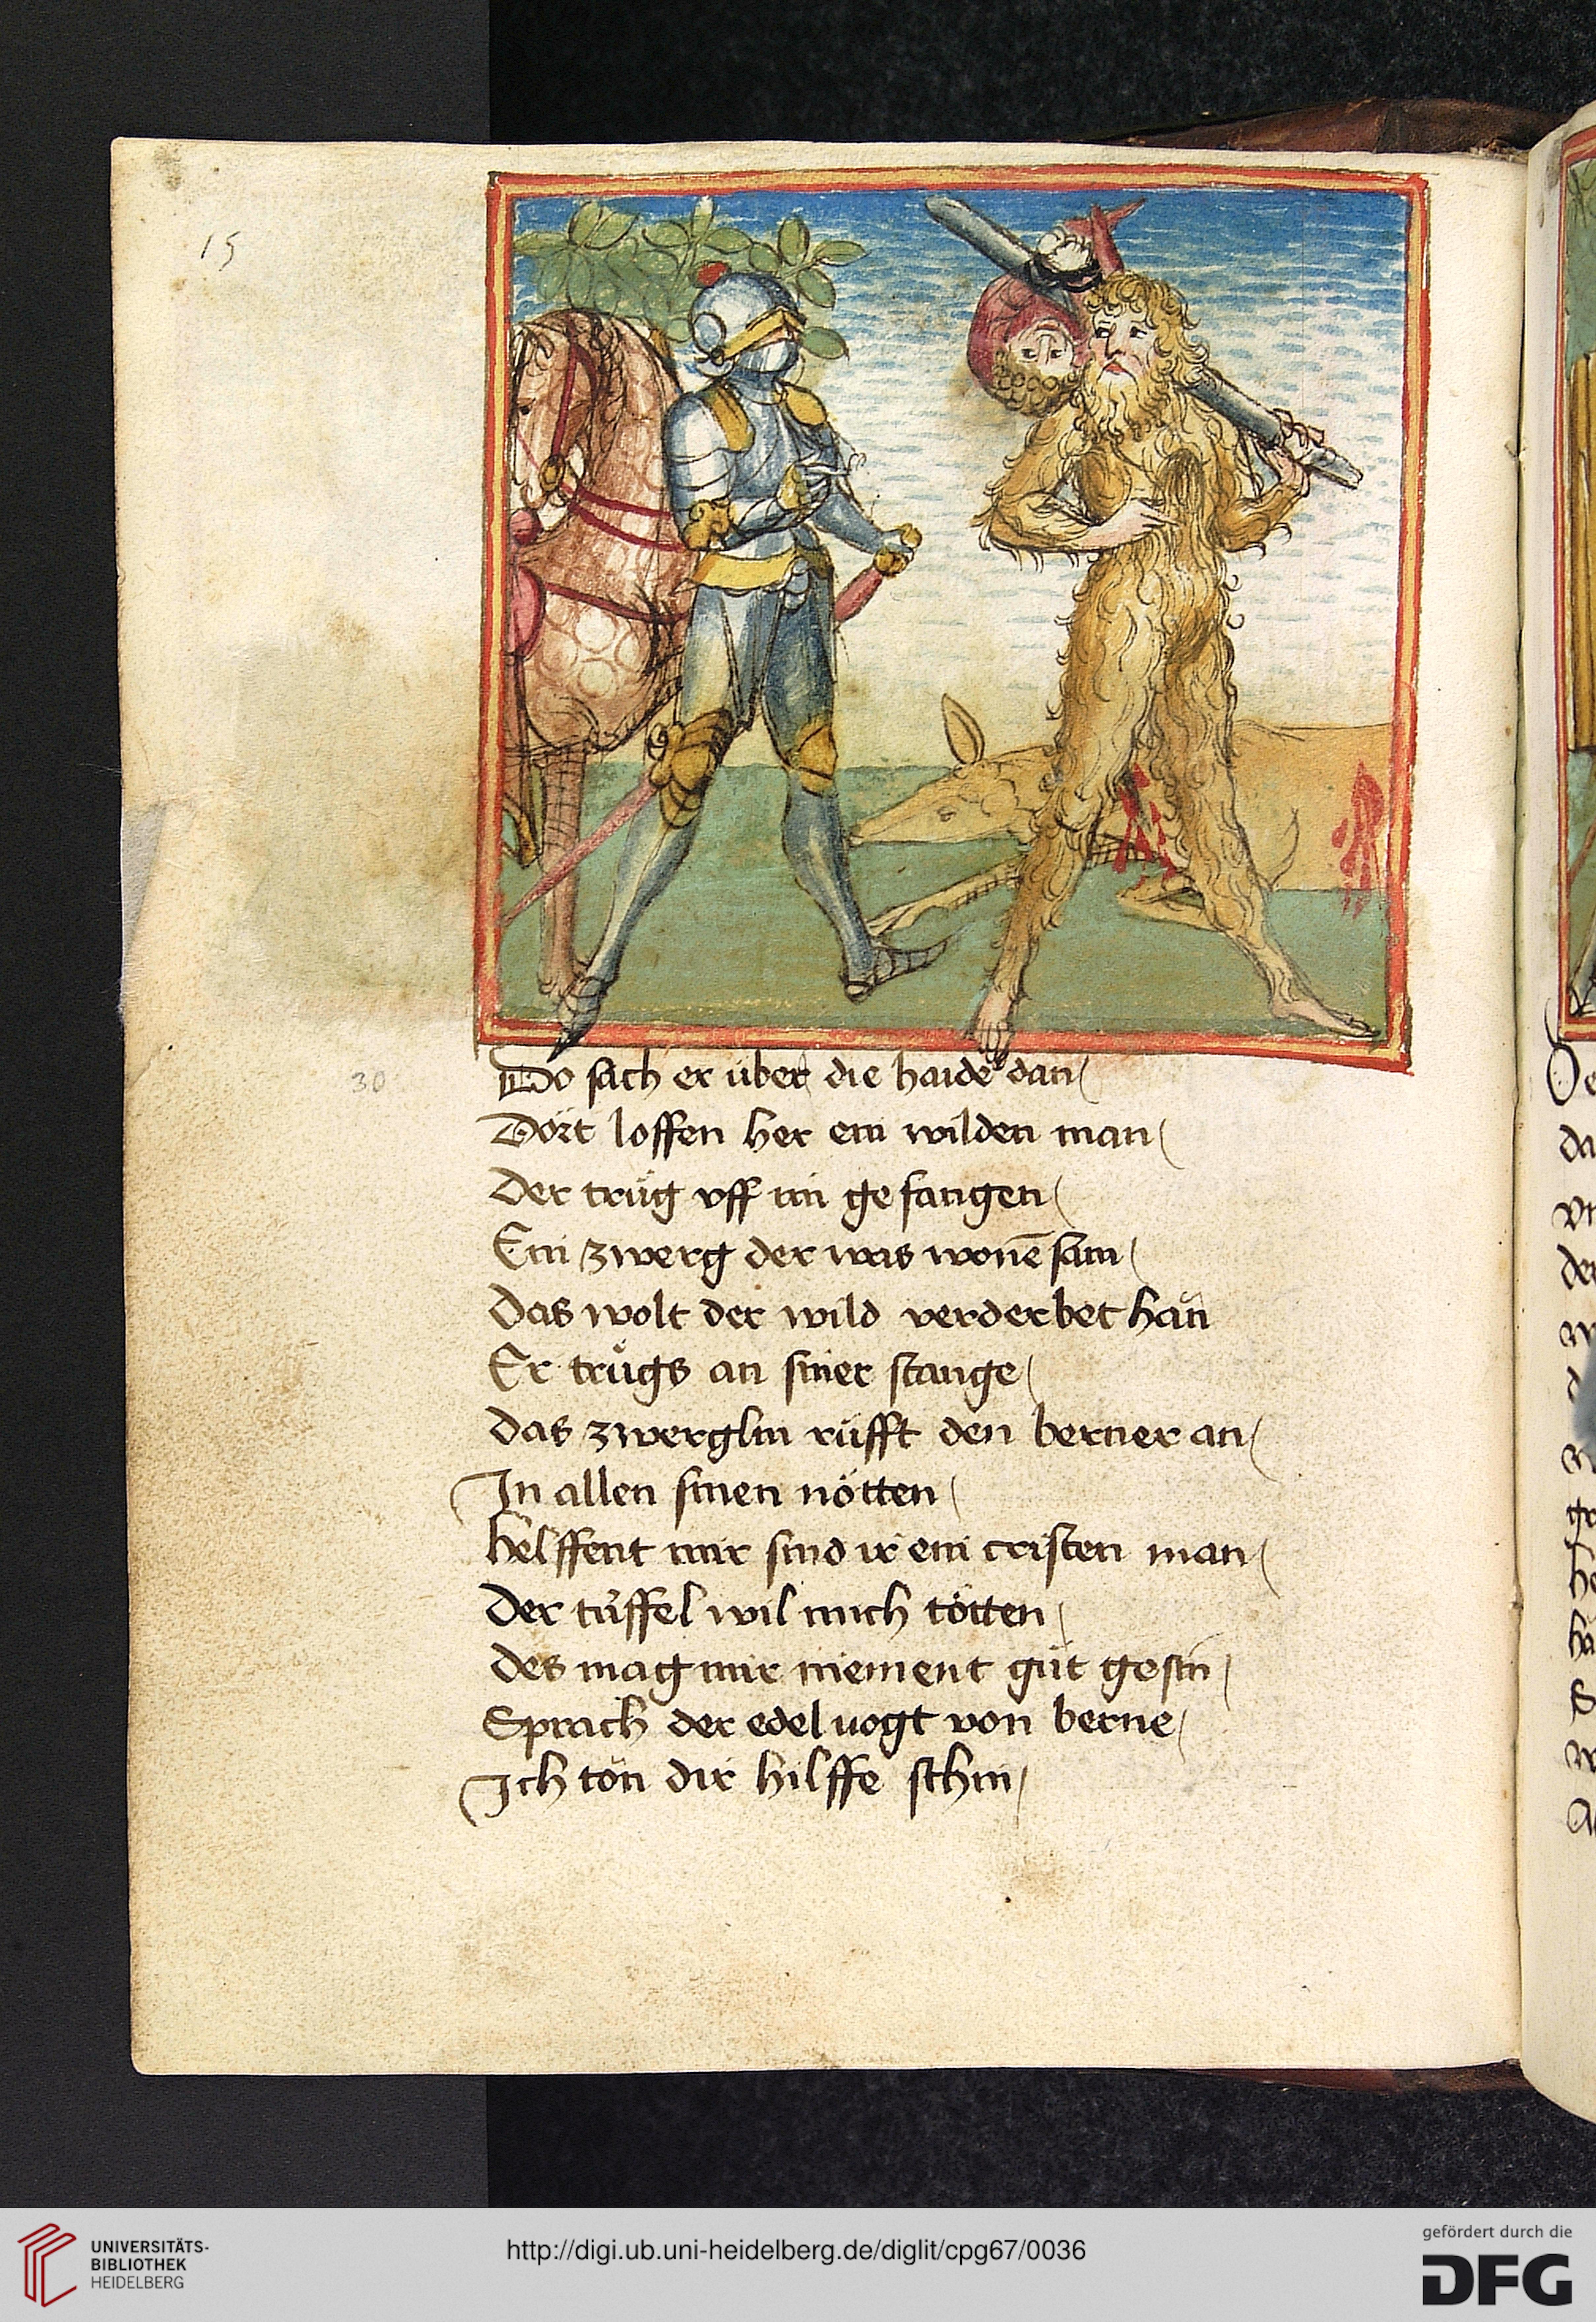 15
30
Do sach er über die haide dan
Dört loffen her ein wilden man
Der trůg vff im gefangen
Ein zwerg der was wonē sam
Das wolt der wild verderbet han
Er trůgs an siner stange
Das zwerglin růfft den berner an
In allen sinen nötten
helffent mir sind ir ein cristen man
Der tüffel wil mich tötten
des mag mir niement gůt gesin
Sprach der edel uogt von berne
Ich tön dir hilffe schin
UNIVERSITÄTS-
BIBLIOTHEK
HEIDELBERG
http://digi.ub.uni-heidelberg.de/diglit/cpg67/0036
gefördert durch die
DFG